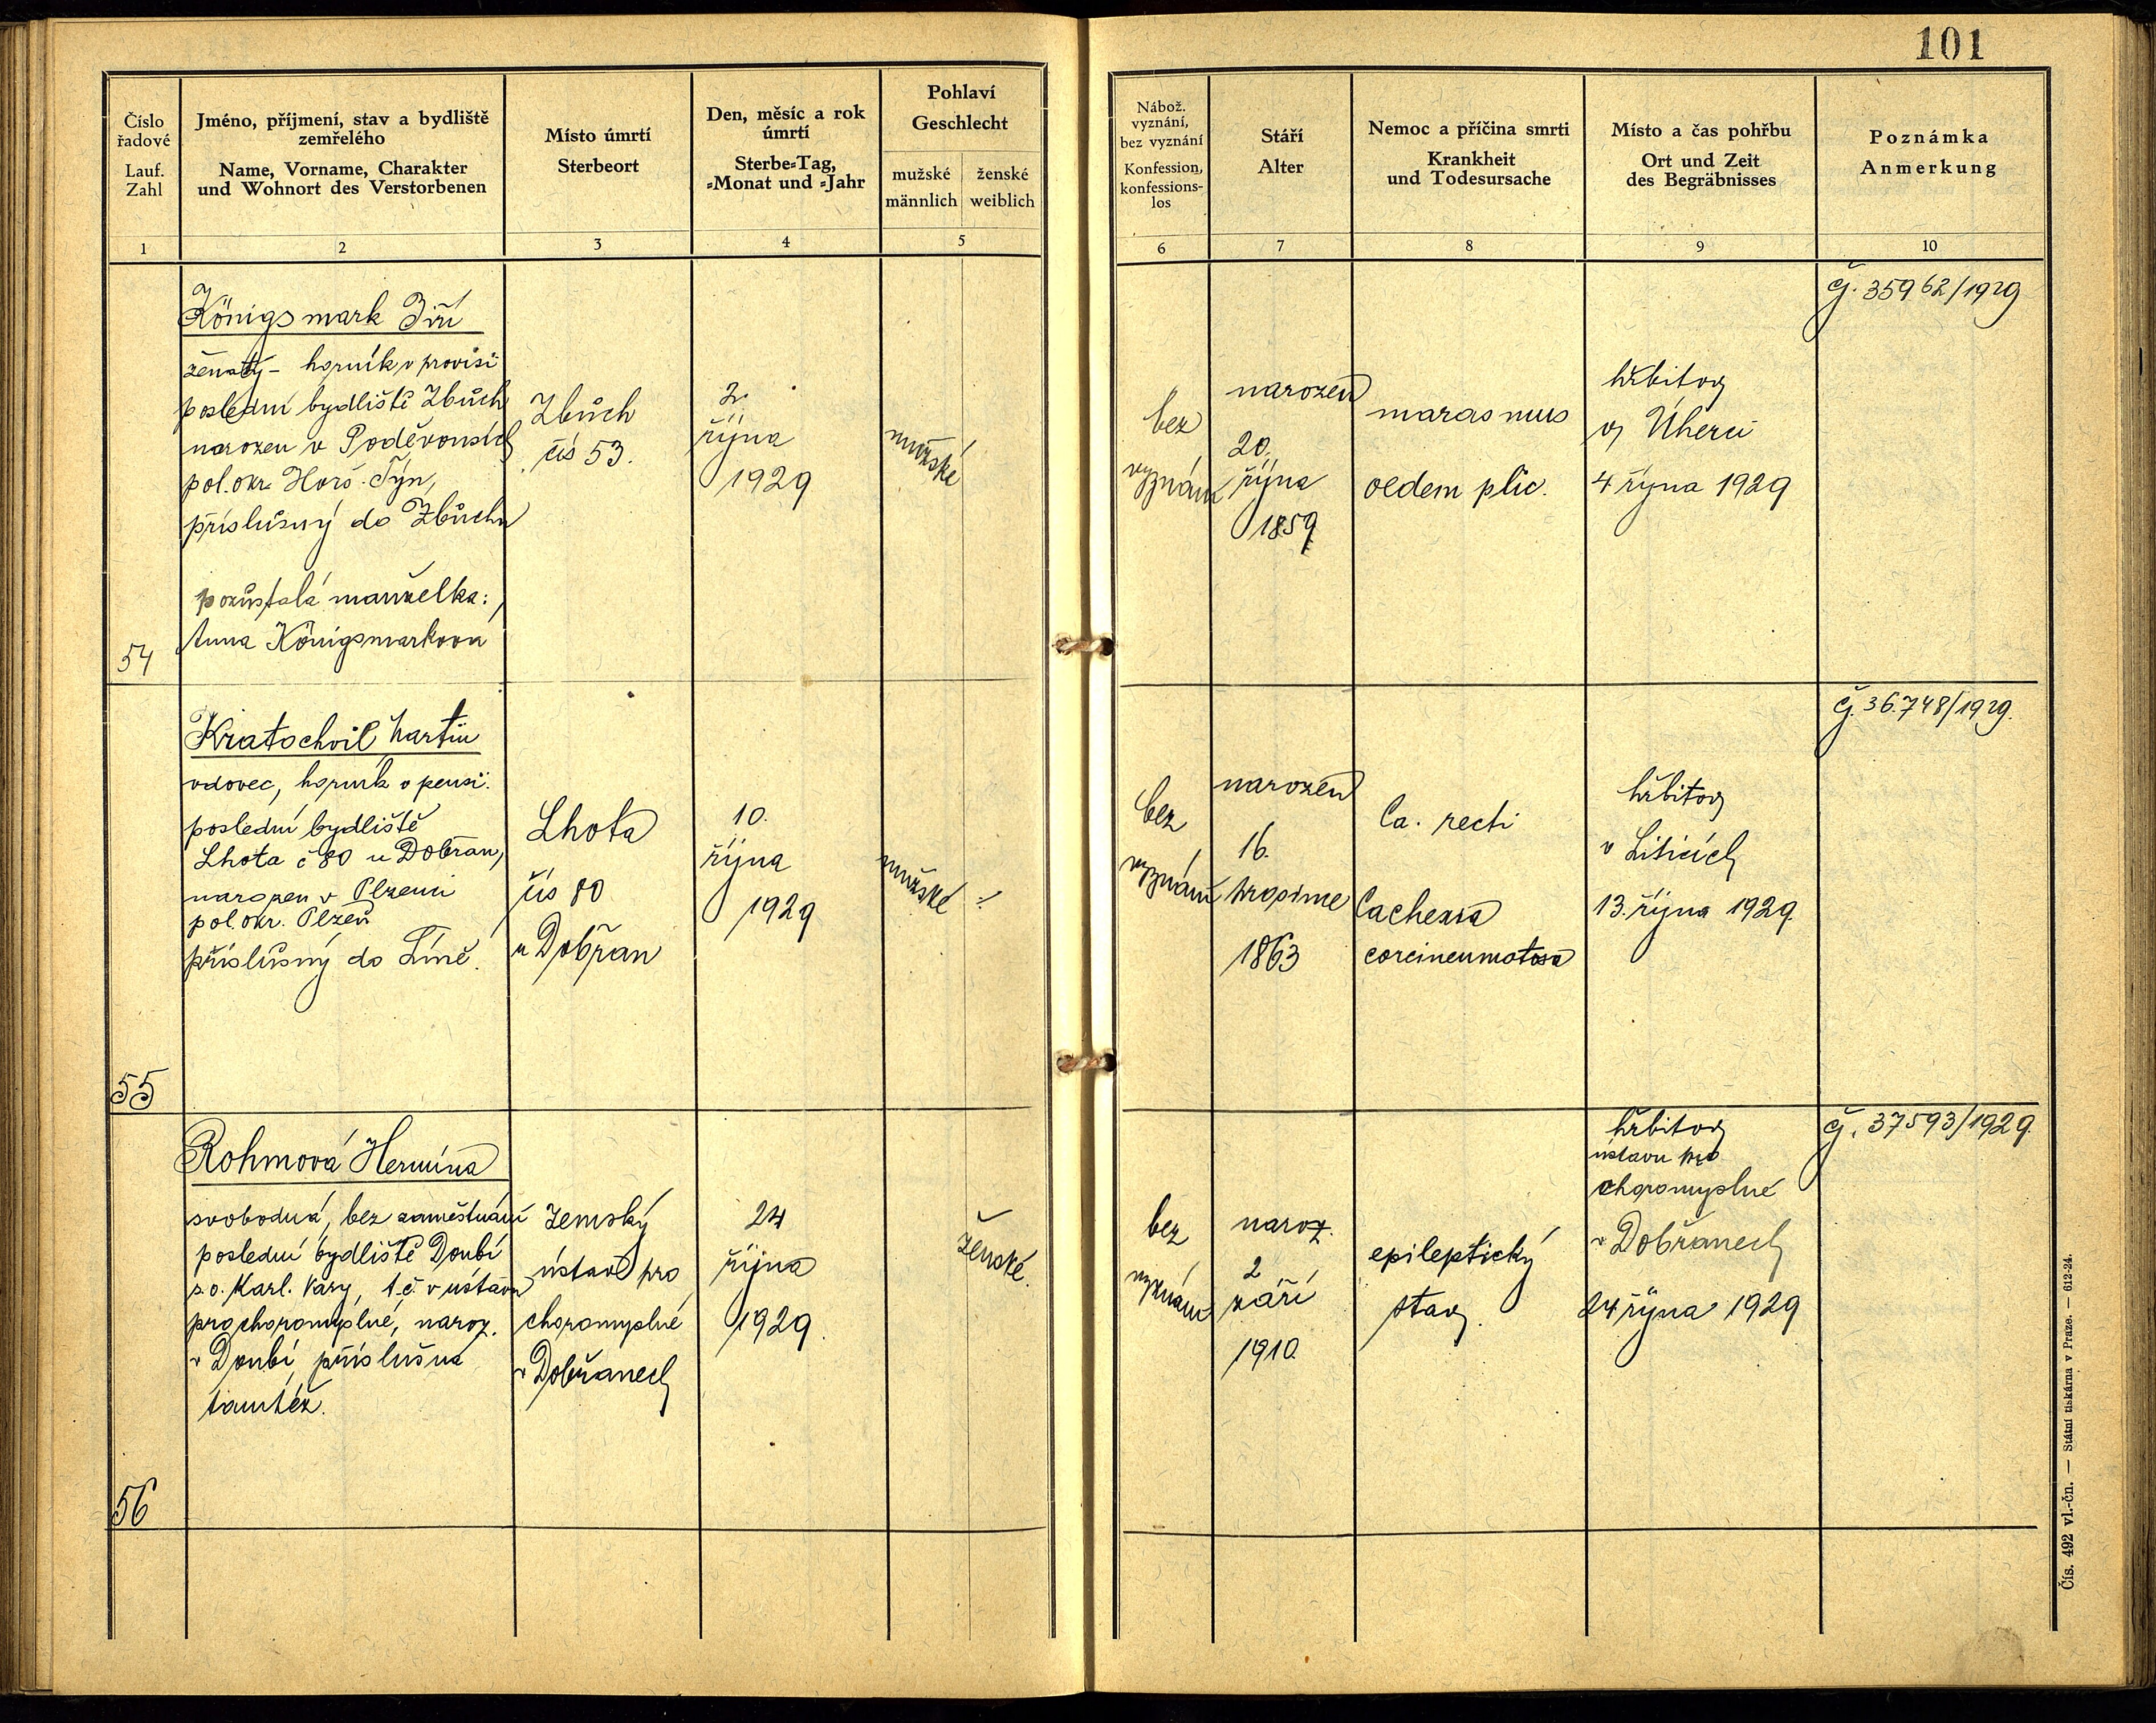 101
Číslo řadové
Lauf. Zahl
1
Jméno, příjmení, stav a bydliště zemřelého
Name, Vorname, Charakter und Wohnort des Verstorbenen
2
Místo úmrtí
Sterbeort
3
Den, měsíc a rok úmrtí
Sterbe-Tag, -Monat und -Jahr
4
Pohlaví
Geschlecht
mužské
männlich
ženské
weiblich
5
Nábož. vyznání, bez vyznání
Konfession, konfessions-los
6
Stáří
Alter
7
Nemoc a příčina smrti
Krankheit und Todesursache
8
Místo a čas pohřbu
Ort und Zeit des Begräbnisses
9
Poznámka
Anmerkung
10
54
Königsmark Jiří
ženatý - horník v provisi
poslední bydliště Zbůch
narozen v
pol. okr. Horš. Týn,
příslušný do Zbůchu
pozůstalá manželka:
Anna Königsmarkova
Zbůch
čís 53.
2.
října
1929
mužské
bez
vyznání
narozen
20.
října
1859
marasmus
oedem plic.
hřbitov
v Úherci
4 října 1929
čj. 35962/1929
55
Kratochvil Martin
vdovec, horník v pensi.
poslední bydliště
Lhota č 80 u Dobřan,
narozen v Plzeni
pol. okr. Plzeň
příslušný do Líně.
Lhota
čís 80
u Dobřan
10.
října
1929
mužské
bez
vyznání
narozen
16.
prosince
1863
Ca. recti
Cachexia
hřbitov
v Liticích
13. října 1929
čj. 36.748/1929.
56
Rohmová Hermína
svobodná, bez zaměstnání
poslední bydliště Doubí
s. o. Karl. Vary, t. č. v ústavu
pro choromyslné, naroz.
v Doubí, příslušná
tamtéž.
Zemský
ústav pro
choromyslné
v Dobřanech
24
října
1929.
ženské.
bez
vyznání
naroz.
2
září
1910
epileptický
stav.
hřbitov
ústavu pro
choromyslné
v Dobřanech
24 října 1929
čj. 37593/1929.
Čís. 492 vl.-čn. — Státní tiskárna v Praze. — 612-24.